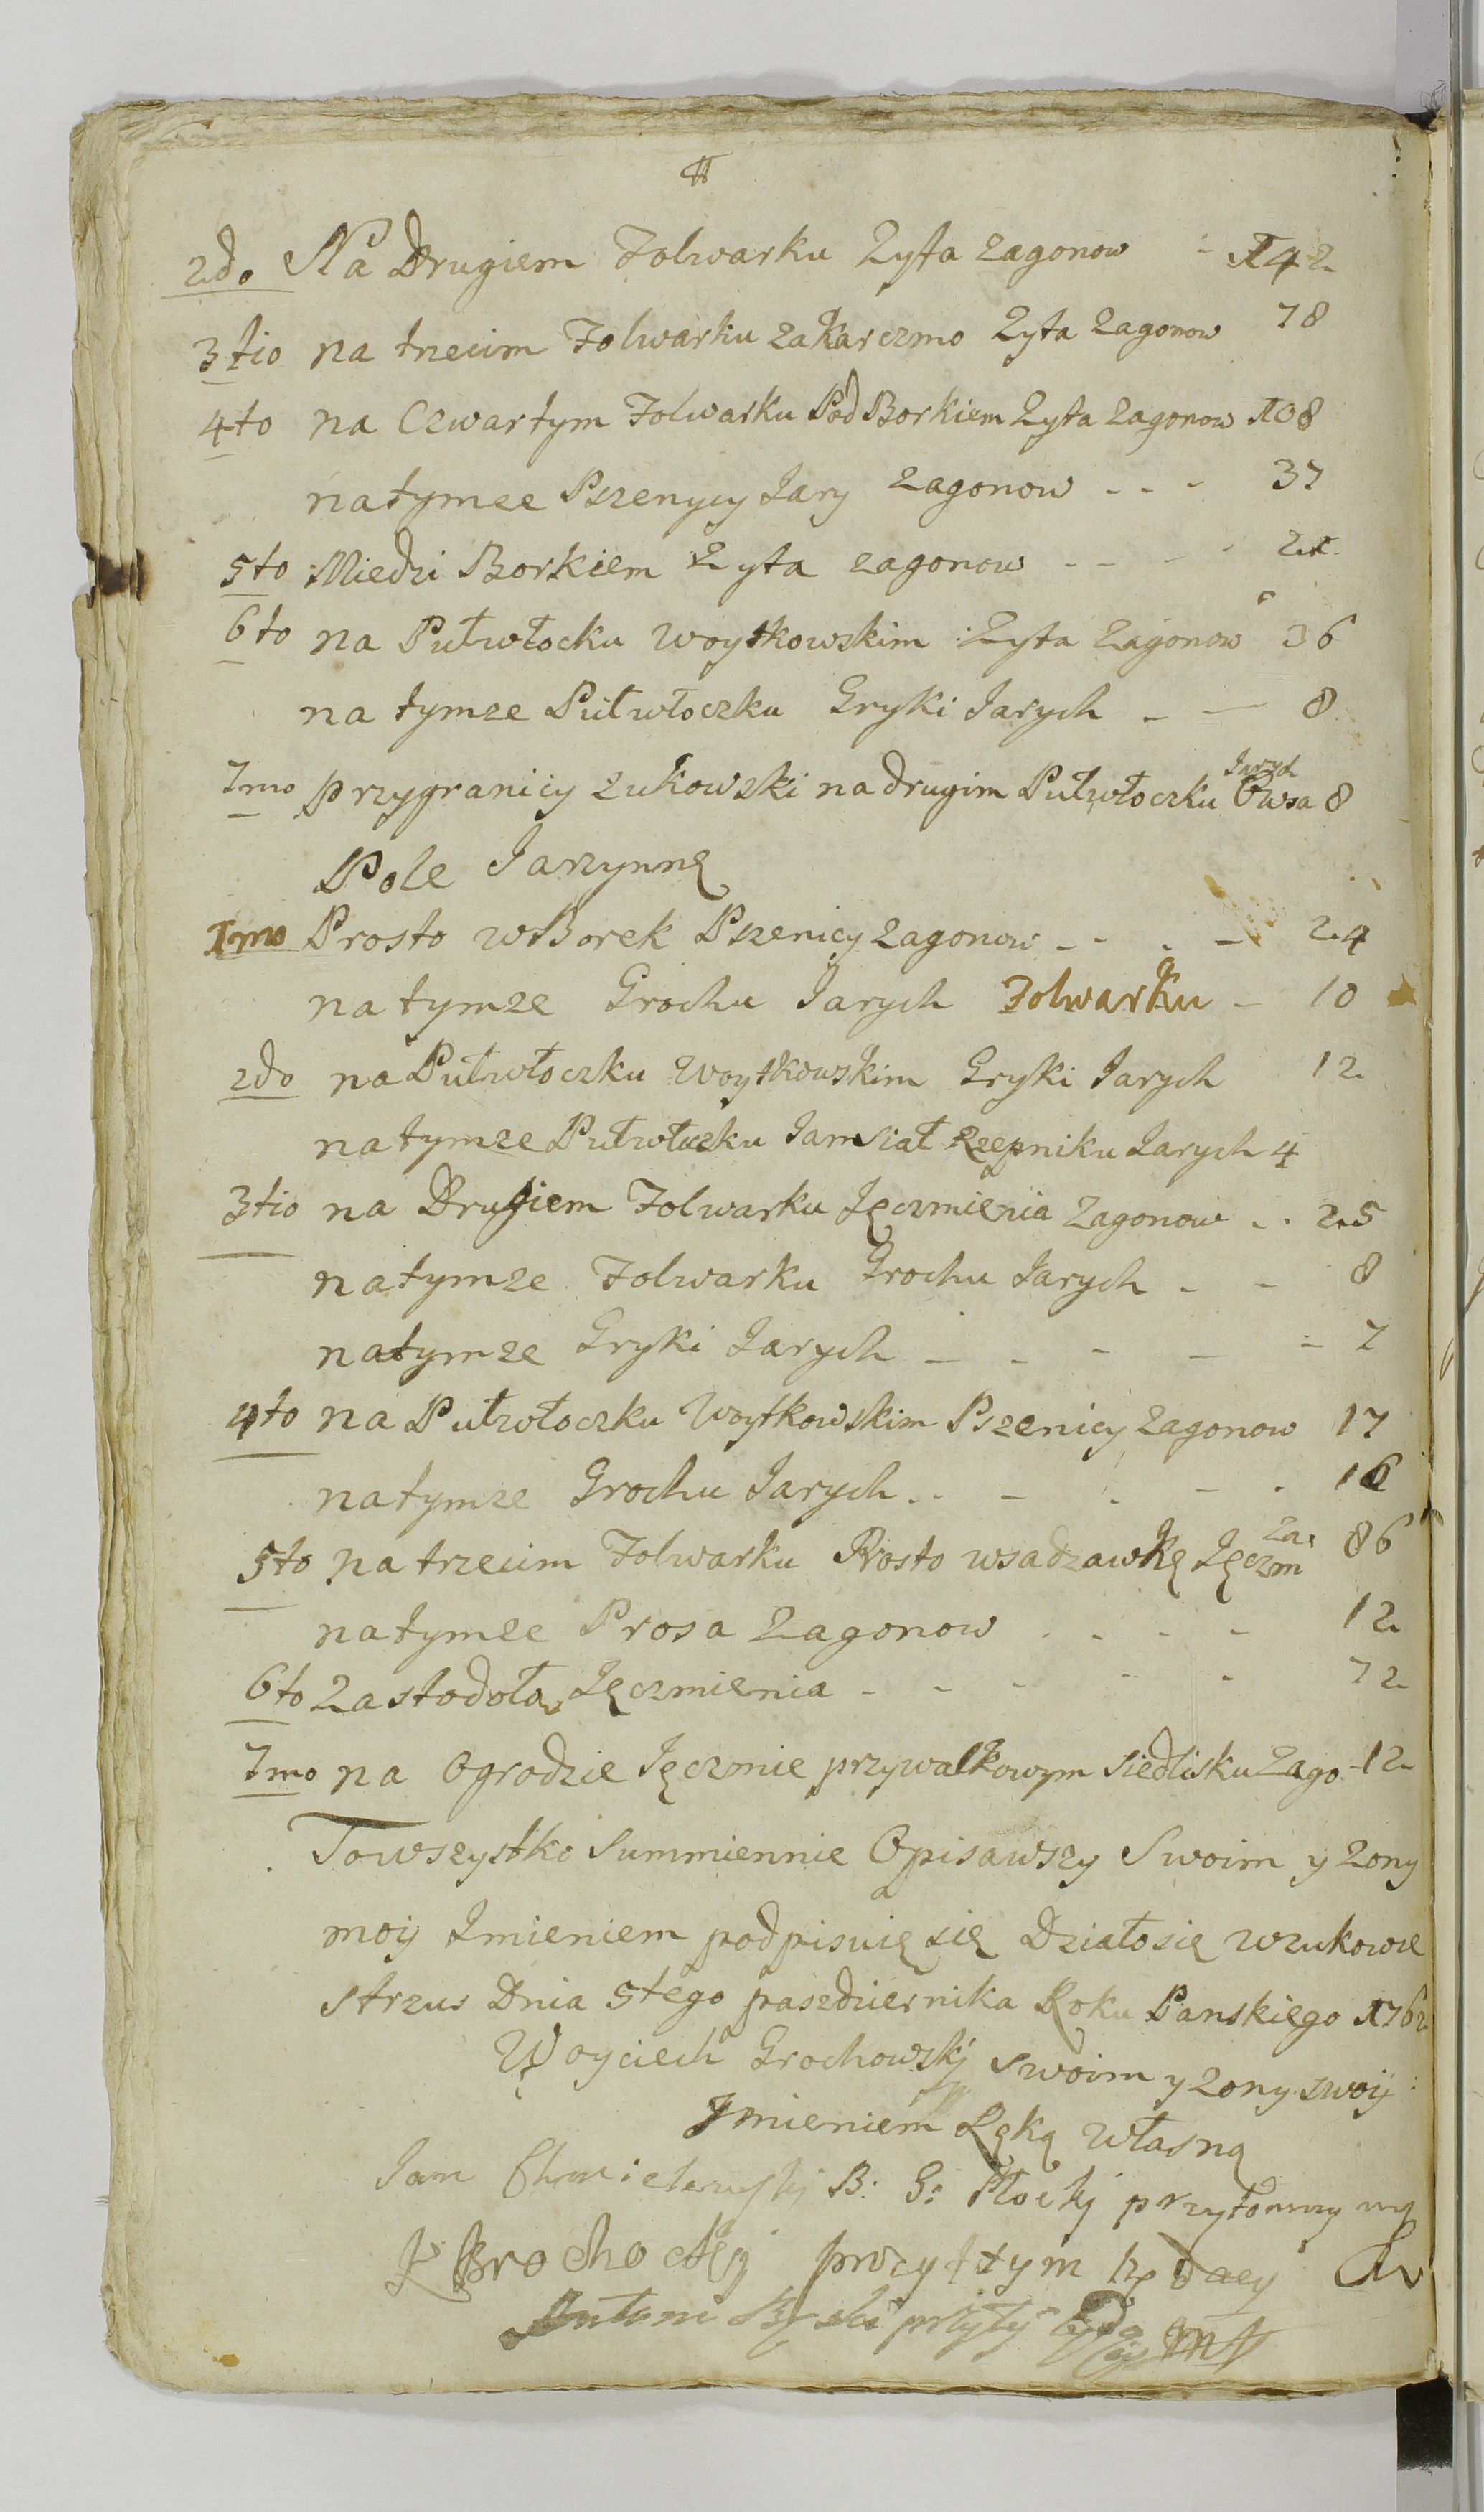 2do Na Drugiem Folwarku Zyta zagonow - 142
3tio na trzecim Folwarku za Karczmo Zyta Zagonow 78
4to na Czwartym Folwarku Pod Borkiem Zyta Zagonow 108
na tymze Pszenycy Jary zagonow - - - 37
5to Miedzi Borkiem Zyta zagonow - - - -
6to na Pułwłocku Woytkowskim Zyta Zagonow 36
na tymze Pułwłoczku Gryki Jarych - — 8
7mo przy granicy zukowski na drugim Pułwłoczku Jarych Owsa 8
Pole Jarzynnę
1mo Prosto w Borek Pszenicy zagonow - - . - 24
na tymze Grochu Jarych Folwarku - 10
2do na Pułwłoczku Woytkowskim Gryki Jarych 12
na tymze Pułwłoczku Jam siał Rzepniku Jarych 4
3tio na Drugiem Folwarku Jęczmienia Zagonow . . 25
na tymze Folwarku Grochu Jarych - - 8
na tymze Gryki Jarych - - - - - 7
4to na Pułwłoczku Woytkowskim Pszenicy zagonow 17
na tymze Grochu Jarych . . - . - . 16
5to na trzecim Folwarku Prosto w sadzawkę Jęczm Za: 86
na tymze Prosa Zagonow . . - - 12
6to Za stodołą Jęczmienia - - - - - 72
7mo na Ogrodzie Jęczmie przy walkowym siedlisku Zago - 12
To wszystko Summiennie Opisawszy Swoim y zony
moij Imieniem podpisuię się Działo się w zukowie
strzus Dnia 5tego pazdziernika Roku Panskiego 1762
Woyciech Grochowskj swoim y zony swoij
Imieniem Ręką własną
Jan Chmielewskj B: G: Płockj przytomny
Brochockj przy tym będący
Antoni przy tÿ